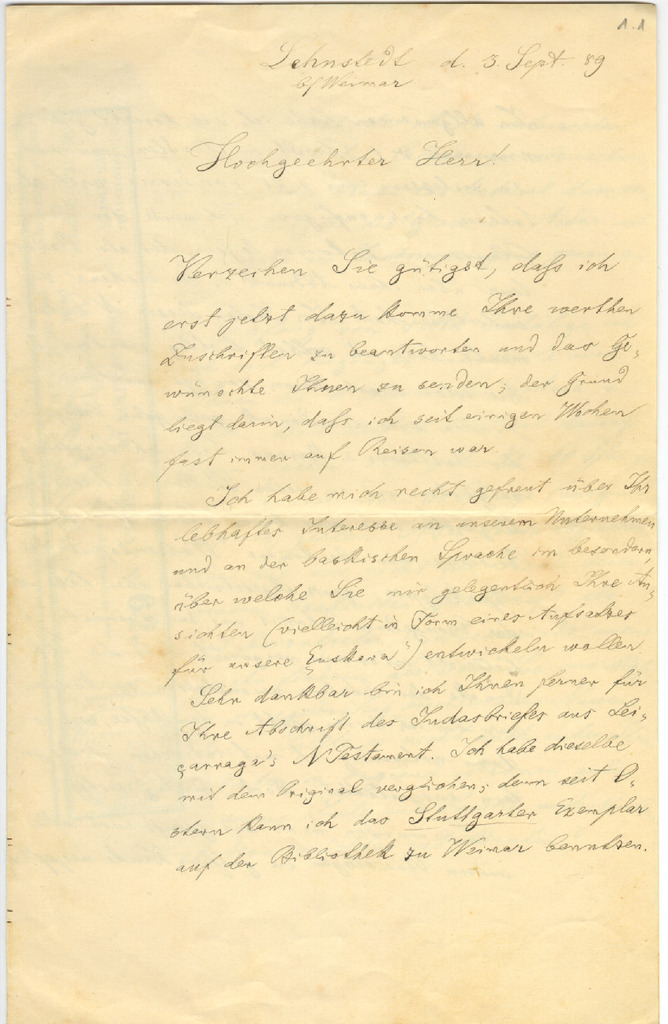 1.1
Lehnstedt d. 3. Sept. 89
b/Weimar
Hochgeehrter Herr!
Verzeihen Sie gütigst, daſs ich
erst jetzt dazu komme Ihre werthen
Zuschriften zu beantworten und das Ge-
wünschte Ihnen zu senden; der Grund
liegt darin, daſs ich seit einigen Wochen
fast immer auf Reisen war.
Ich habe mich recht gefreut über Ihr
lebhaftes Interesse an unserem Unternehmen
und an der baskischen Sprache im besondern,
über welche Sie mir gelegentlich Ihre An-
sichten (vielleicht in Form eines Aufsatzes
für unsere „Euskara“) entwickeln wollen.
Sehr dankbar bin ich Ihnen ferner für
Ihre Abschrift des Judasbriefes aus Lei-
çarraga's NTestament. Ich habe dieselbe
mit dem Original verglichen; denn seit O-
stern kann ich das Stuttgarter Exemplar
auf der Bibliothek zu Weimar benutzen.